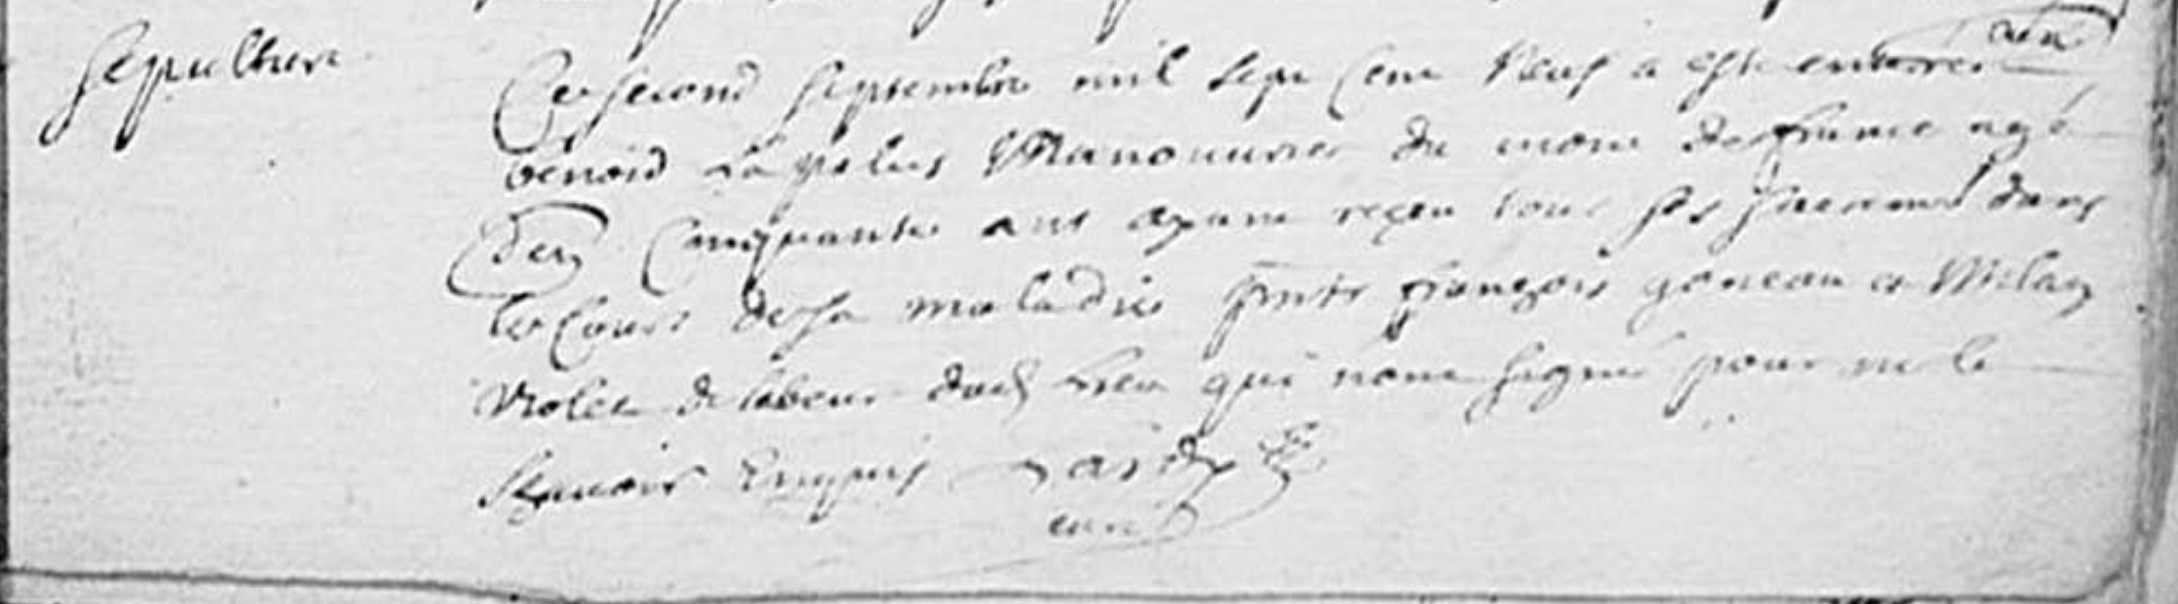 Sepulture
Ce second septembre mil sept cent neuf a esté enterré
benoid manouvrier du mont agé
de cinquante ans ayant reçeu tous ses sacremt dans
le cours de sa maladie pnts françois goneau et Milan
Violet de labeur dud lieu qui nont signé pour ne le
scavoir enquis
curé